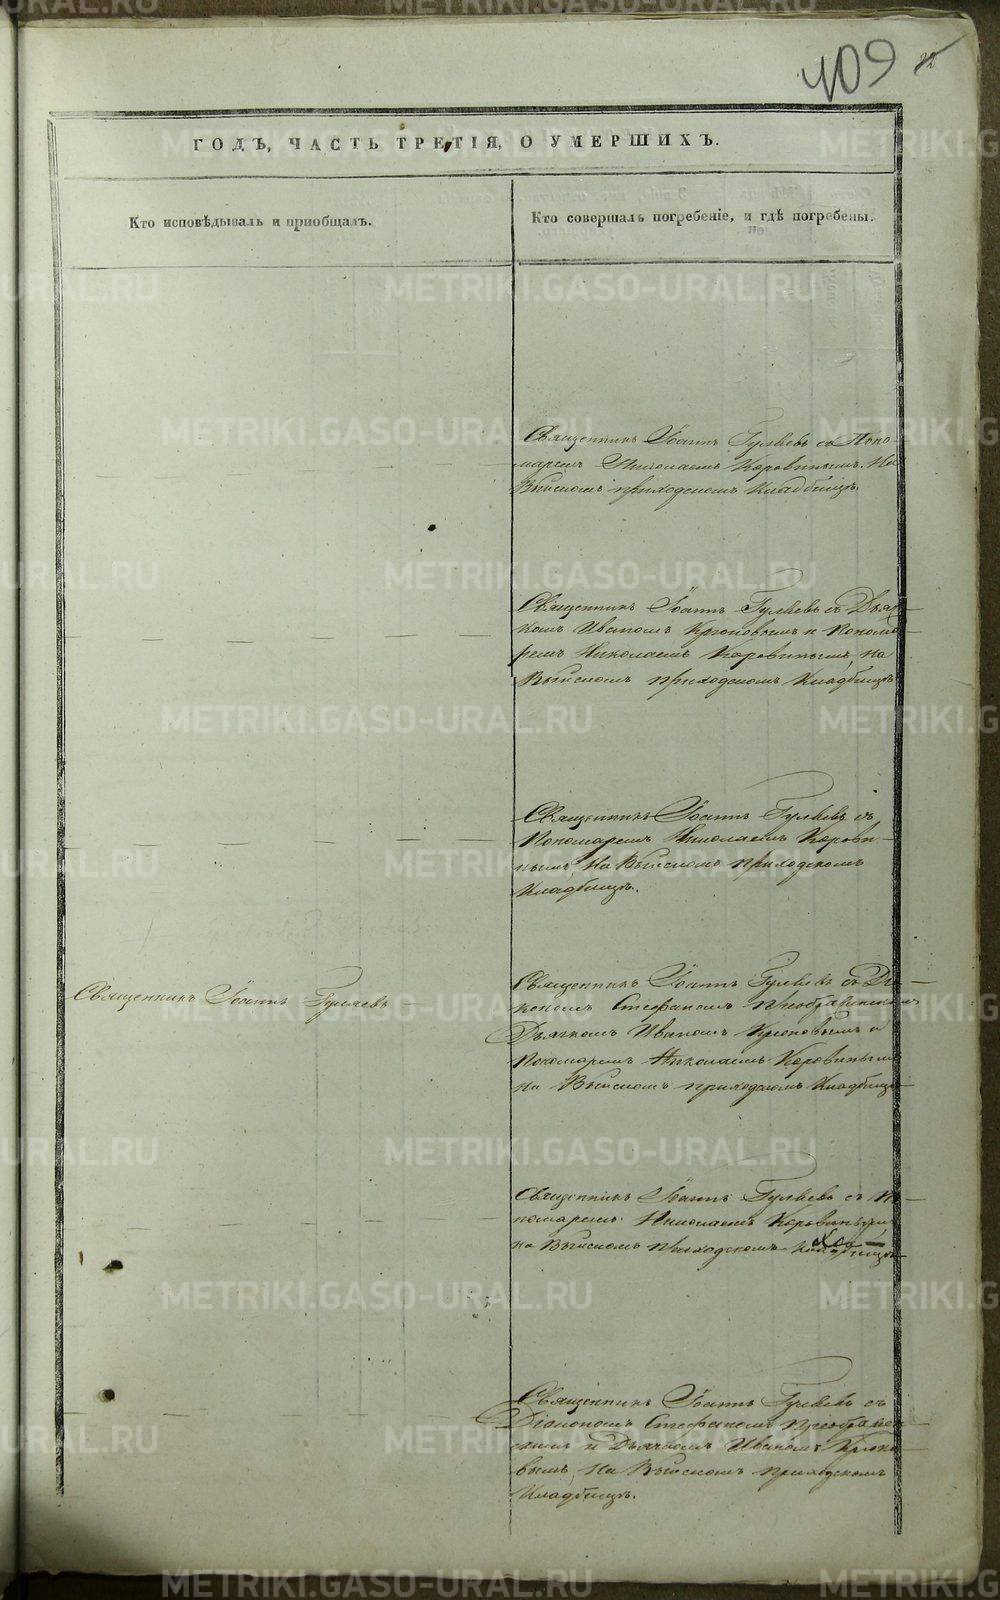 409 82
ГОДЪ, ЧАСТЬ ТРЕТІЯ, О УМЕРШИХЪ.
Кто исповѣдывалъ и пріобщалъ.
Кто совершалъ погребеніе, и гдѣ погребены.
Священникъ Іоаннъ Гуляевъ съ Поно-
маремъ Николаемъ Коровинымъ. На
Выйскомъ приходскомъ Кладбищѣ.
Священникъ Іоаннъ Гуляевъ съ Дьяч-
комъ Иваномъ Крюковымъ и Понома-
ремъ Николаемъ Коровинымъ, на
Выйскомъ приходскомъ Кладбищѣ
Священникъ Іоаннъ Гуляевъ съ
Пономаремъ Николаемъ Корови-
нымъ, На Выйскомъ приходскомъ
Кладбищѣ.
Священникъ Іоаннъ Гуляевъ
Священникъ Іоаннъ Гуляевъ съ Діа-
кономъ Стефаномъ Преображенскимъ
Дьячкомъ Иваномъ Крюковымъ и
Пономаремъ Николаемъ Коровинымъ
на Выйскомъ приходскомъ Кладбищѣ
Священникъ Іоаннъ Гуляевъ съ По-
номаремъ Николаемъ Коровинымъ
на Выйскомъ приходскомъ Кладбищѣ
Священникъ Іоаннъ Гуляевъ съ
Діакономъ Стефаномъ Преображен-
скимъ и Дьячкомъ Иваномъ Крюко-
вымъ, На Выйскомъ приходскомъ
Кладбищѣ.
METRIKI.GASO-URAL.RU